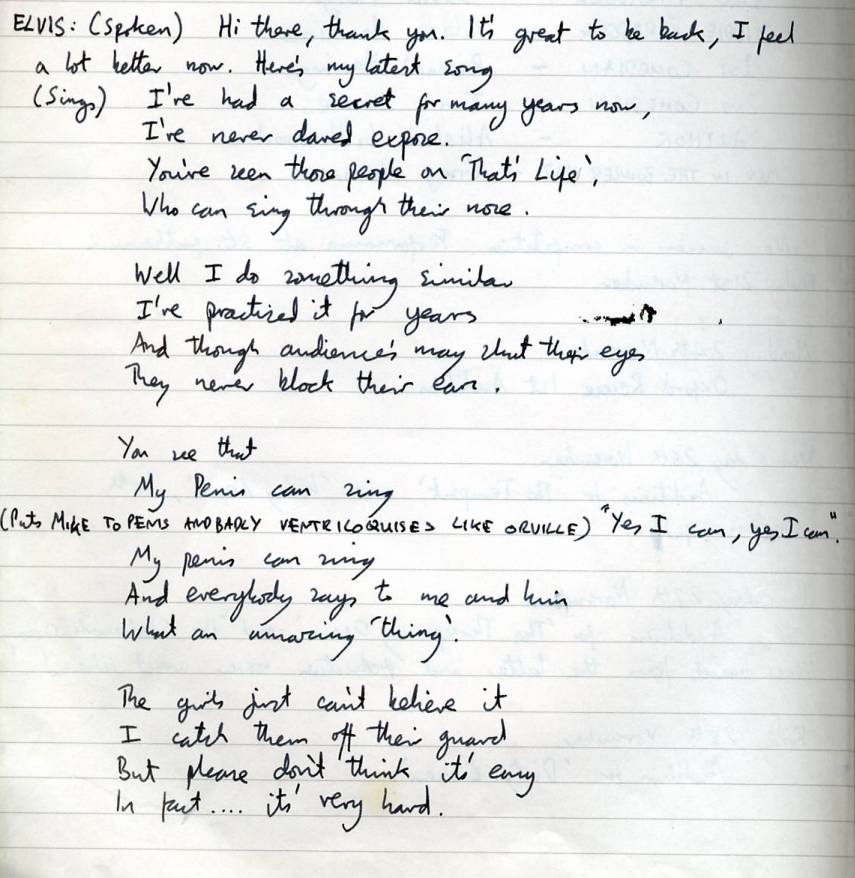 ELVIS: (Spoken) Hi there, thank you. It's great to be back, I feel
a lot better now. Here's my latest song
(Sings) I've had a secret for many years now,
I've never dared expose.
You've seen those people on 'That's Life',
Who can sing through their nose.
Well I do something similar
I've practised it for years
And though audience's may shut their eyes
They never block their ears.
You see that
My Penis can sing
(PUTS MIKE TO PENIS AND BADLY VENTRILOQUISES LIKE ORVILLE) "Yes I can, yes I can".
My penis can sing
And everybody says to me and him
What an amazing 'thing'.
The girls just can't believe it
I catch them off their guard
But please don't think it's easy
In fact.... its' very hard.